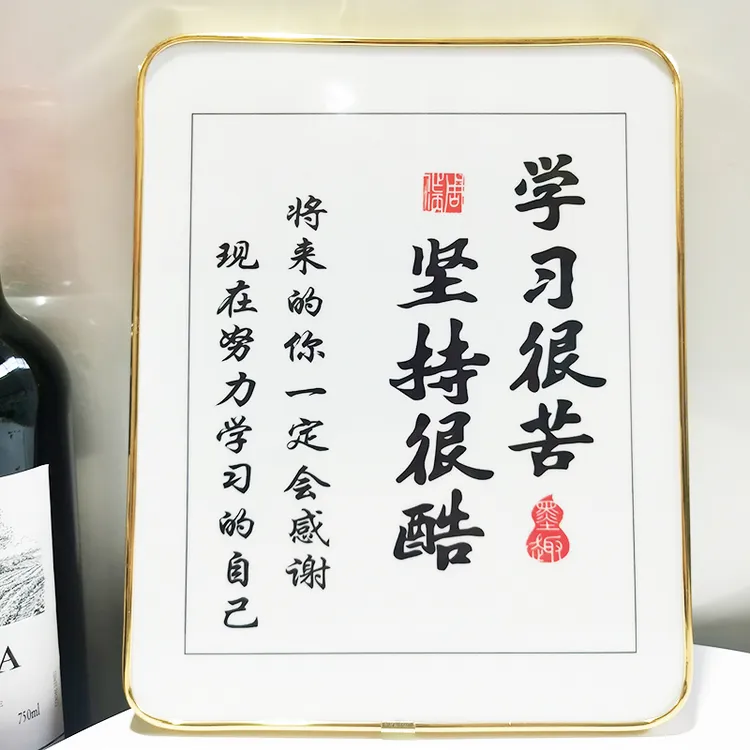 学习很苦
坚持很酷
将来的你一定会感谢
现在努力学习的自己
墨趣
750ml